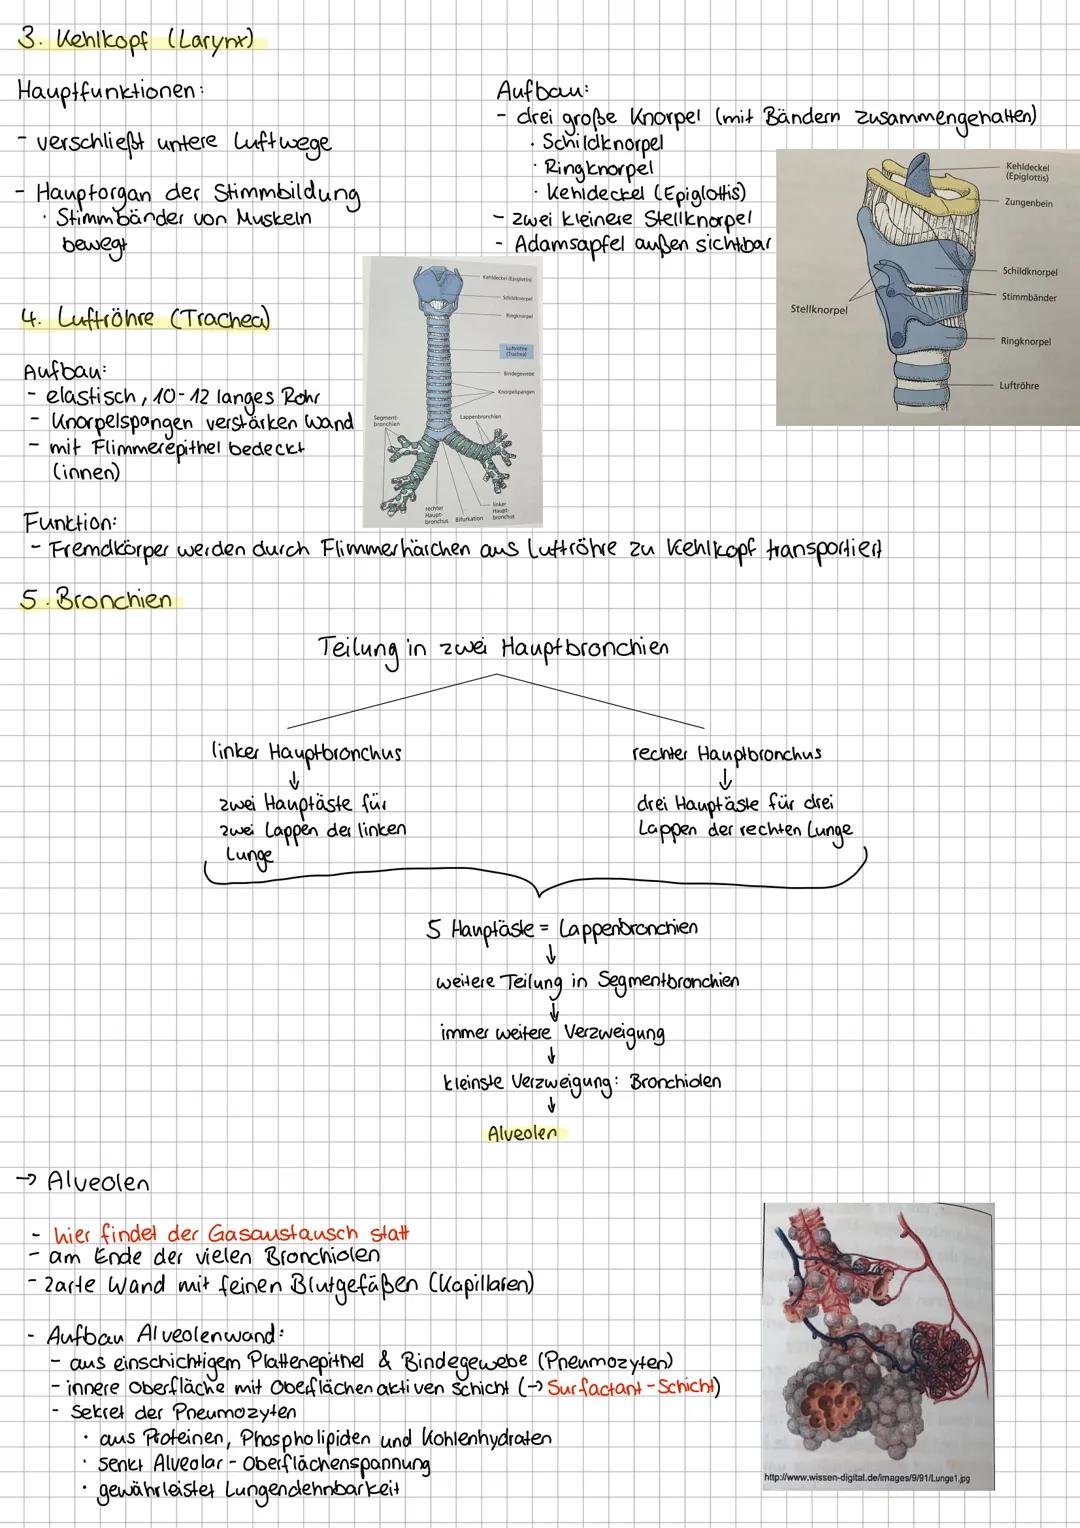 3. Kehlkopf (Larynx)
Hauptfunktionen:
- verschließt untere Luftwege
- Hauptorgan der Stimmbildung
· Stimmbänder von Muskeln
bewegt
Aufbau:
- drei große Knorpel (mit Bändern zusammengehalten)
· Schildknorpel
· Ringknorpel
· Kehldeckel (Epiglottis)
- zwei kleinere Stellknorpel
- Adamsapfel außen sichtbar
Kehldeckel
(Epiglottis)
Zungenbein
Schildknorpel
Stimmbänder
Stellknorpel
Ringknorpel
Luftröhre
4. Luftröhre (Trachea)
Aufbau:
- elastisch, 10-12 langes Rohr
- Knorpelspangen verstärken Wand
- mit Flimmerepithel bedeckt
(innen)
Kehldeckel (Epiglottis)
Schildknorpel
Ringknorpel
Luftröhre
(Trachea)
Bindegewebe
Knorpelspangen
Segment-
bronchien
Lappenbronchien
rechter
Haupt-
bronchus
Bifurkation
linker
Haupt-
bronchus
Funktion:
- Fremdkörper werden durch Flimmerhärchen aus Luftröhre zu Kehlkopf transportiert
5. Bronchien
Teilung in zwei Hauptbronchien
linker Hauptbronchus
↓
zwei Hauptäste für
zwei Lappen der linken
Lunge
rechter Hauptbronchus
↓
drei Hauptäste für drei
Lappen der rechten Lunge
5 Hauptäste = Lappenbronchien
↓
weitere Teilung in Segmentbronchien
↓
immer weitere Verzweigung
↓
kleinste Verzweigung: Bronchiolen
↓
Alveolen
→ Alveolen
- hier findet der Gasaustausch statt
- am Ende der vielen Bronchiolen
- zarte Wand mit feinen Blutgefäßen (Kapillaren)
- Aufbau Alveolenwand:
- aus einschichtigem Plattenepithel & Bindegewebe (Pneumozyten)
- innere Oberfläche mit Oberflächenaktiven Schicht (→ Surfactant-Schicht)
- Sekret der Pneumozyten
· aus Proteinen, Phospholipiden und Kohlenhydraten
· senkt Alveolar-Oberflächenspannung
· gewährleistet Lungendehnbarkeit
http://www.wissen-digital.de/images/9/91/Lunge1.jpg